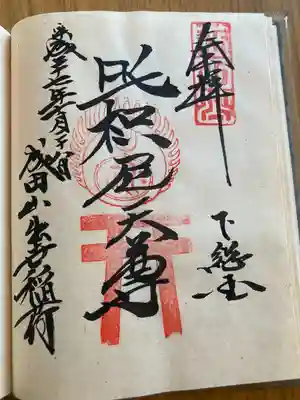 奉拝
下総国
吒枳尼天尊
平成三十一年一月日
成田山出世稲荷